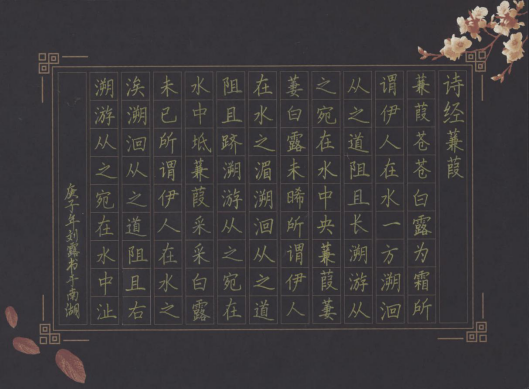 诗经蒹葭
蒹葭苍苍白露为霜所
谓伊人在水一方溯洄
从之道阻且长溯游从
之宛在水中央蒹葭萋
萋白露未晞所谓伊人
在水之湄溯洄从之道
阻且跻溯游从之宛在
水中坻蒹葭采采白露
未已所谓伊人在水之
涘溯洄从之道阻且右
溯游从之宛在水中沚
庚子年刘露书于南湖